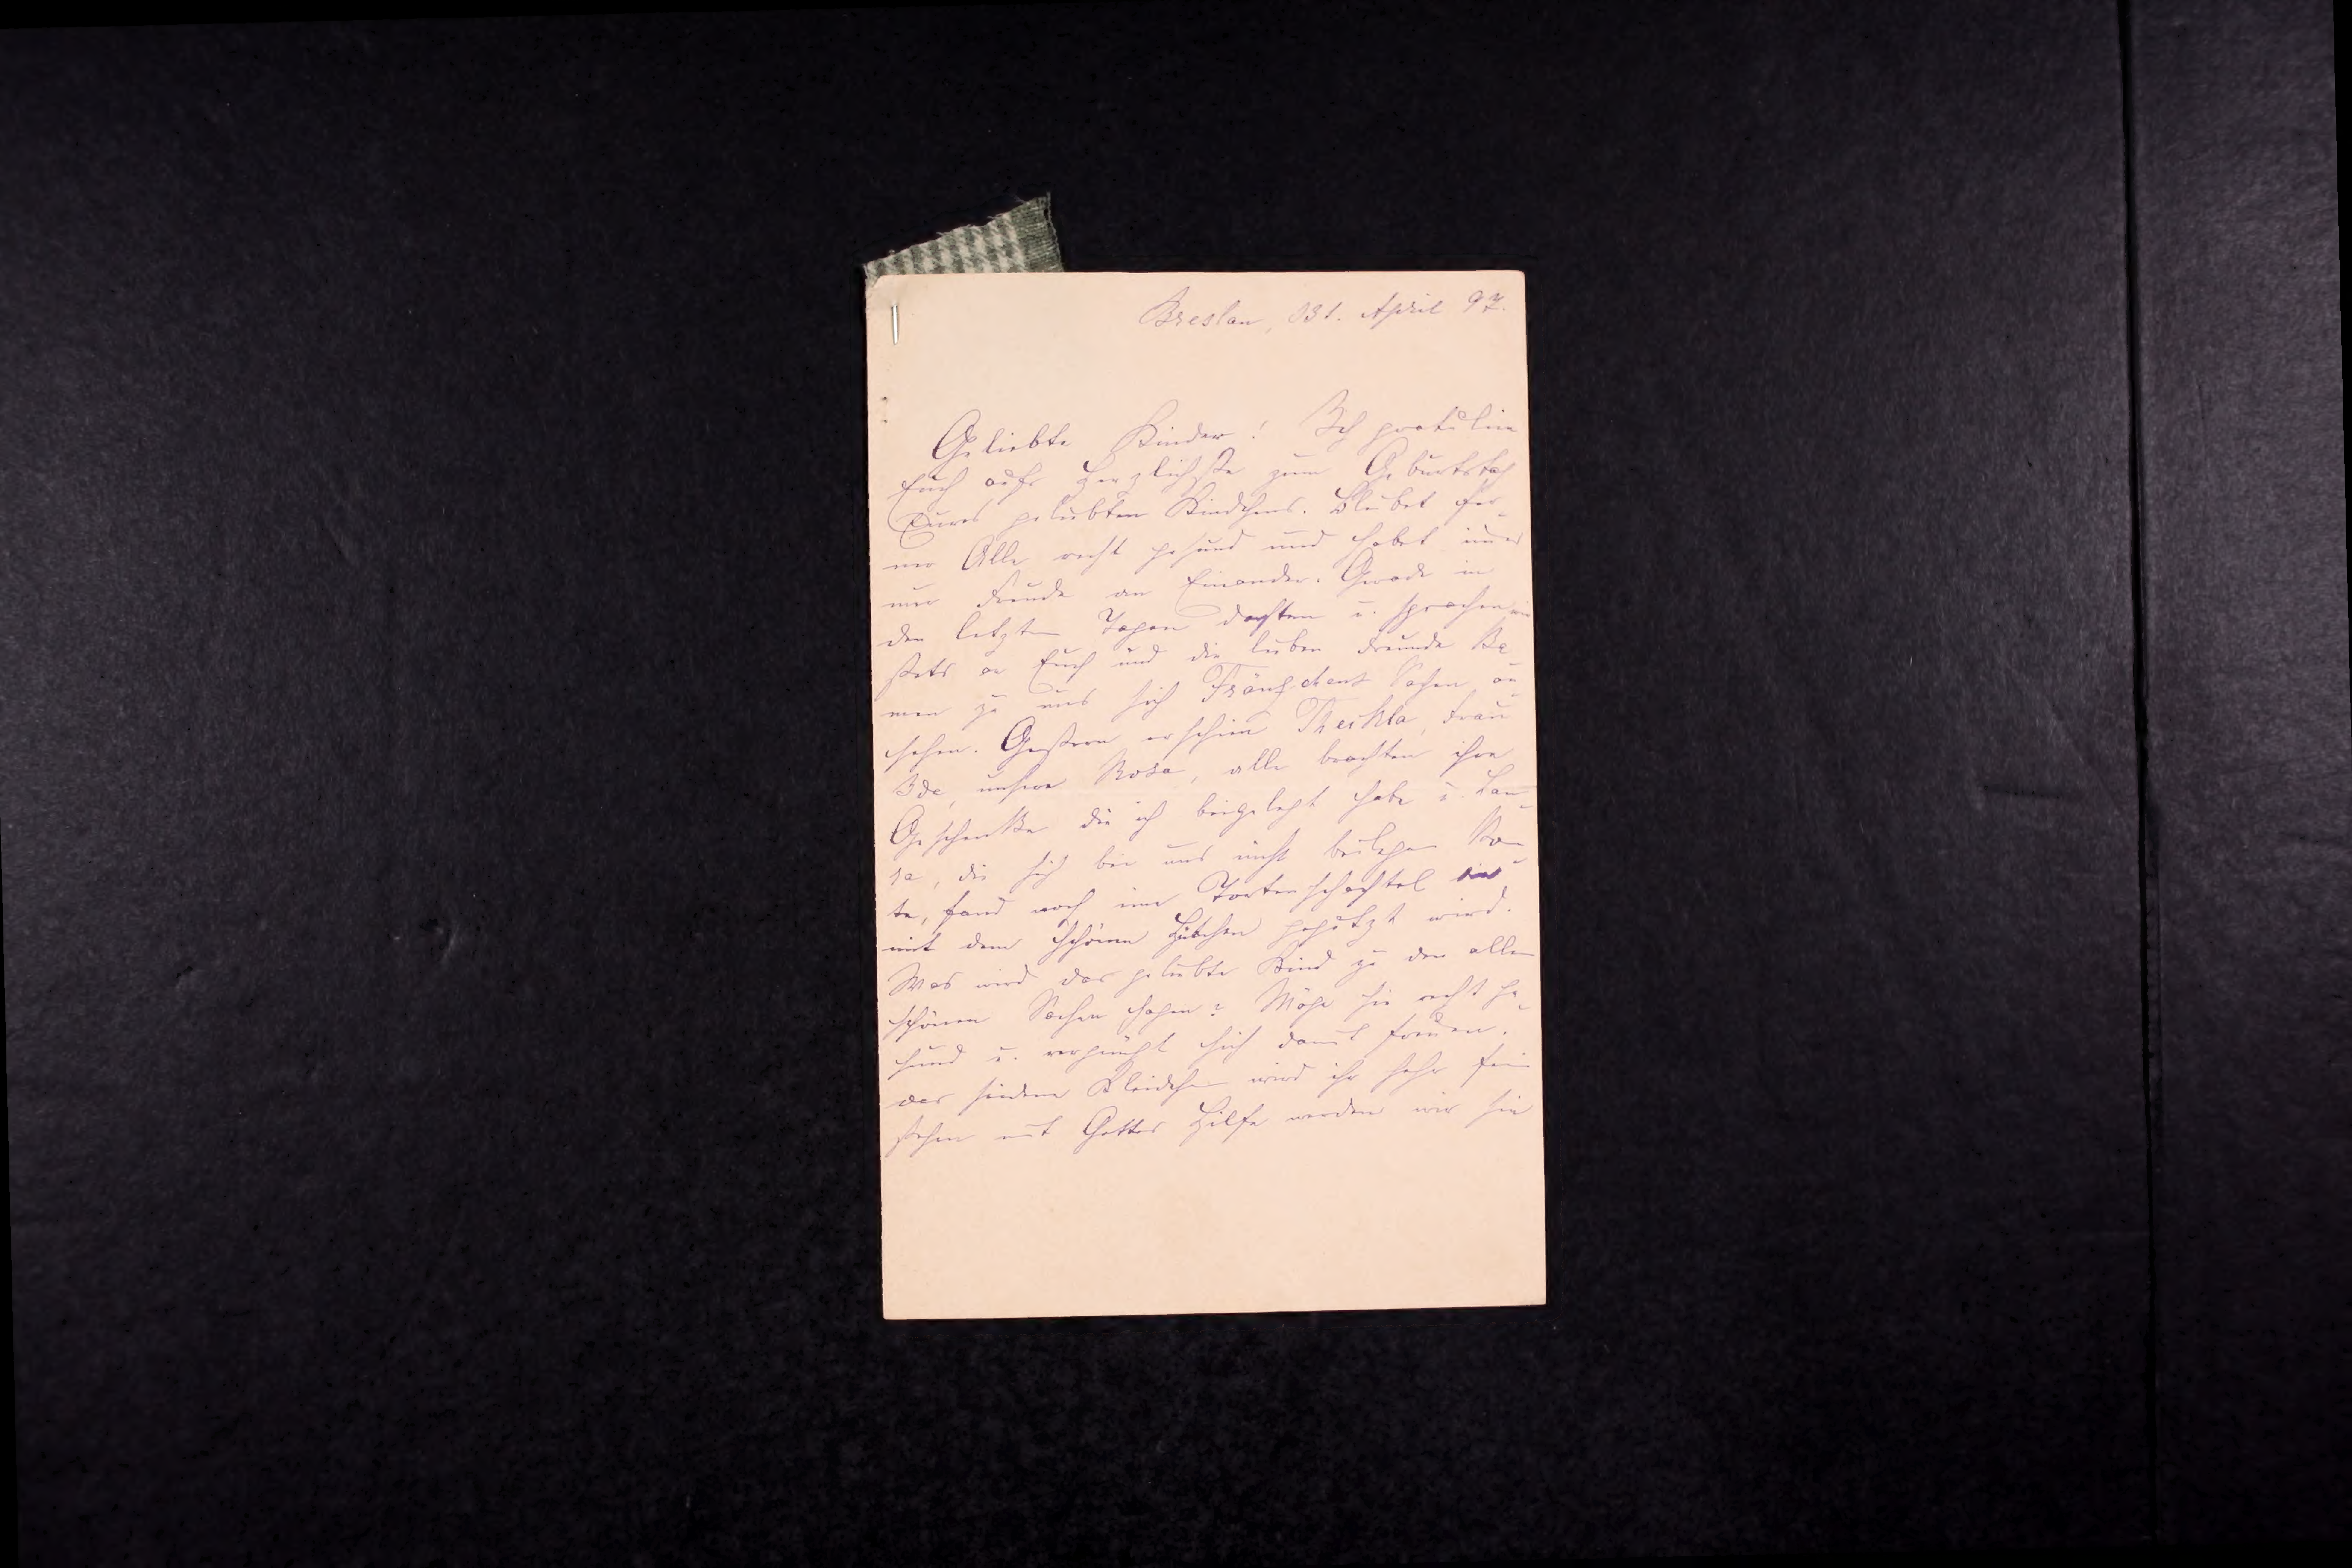 Breslau, 31. April 97.
Geliebte Kinder! Ich gratulire
Euch aufs Herzlichste zum Geburtstag
Eures geliebten Kindchens. Bleibet fer-
ner Alle recht gesund und habet immer
nur Freude an Einander. Gerade in
den letzten Tagen dachten u. sprachen wir
stets an Euch und die lieben Freunde ka
men zu uns sich Fränzchens Sachen an-
sehen. Gestern erschien Theckla, Frau
Ida, unsere Rosa, alle brachten ihre
Geschenke die ich beigelegt habe u. Lau-
ra, die sich bei uns nicht beilegen konn
te, fand noch eine Tortenschachtel
mit dem schönen Hütchen geputzt wird.
Was wird das geliebte Kind zu den allen
schönen Sachen sagen? Möge sie recht ge-
sund u. vergnügt sich damit freuen.
das seidene Kleidchen wird ihr sehr fein
stehen mit Gottes Hilfe werden wir sie